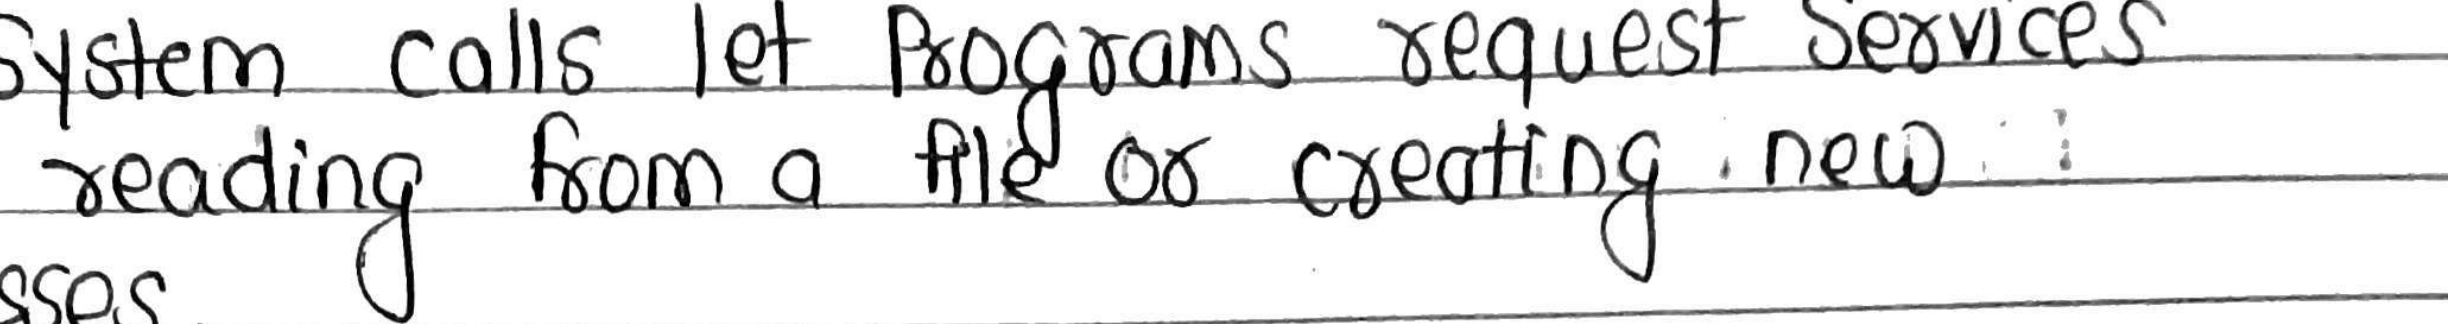 System calls let Programs request Services
reading from a file or creating new
sses